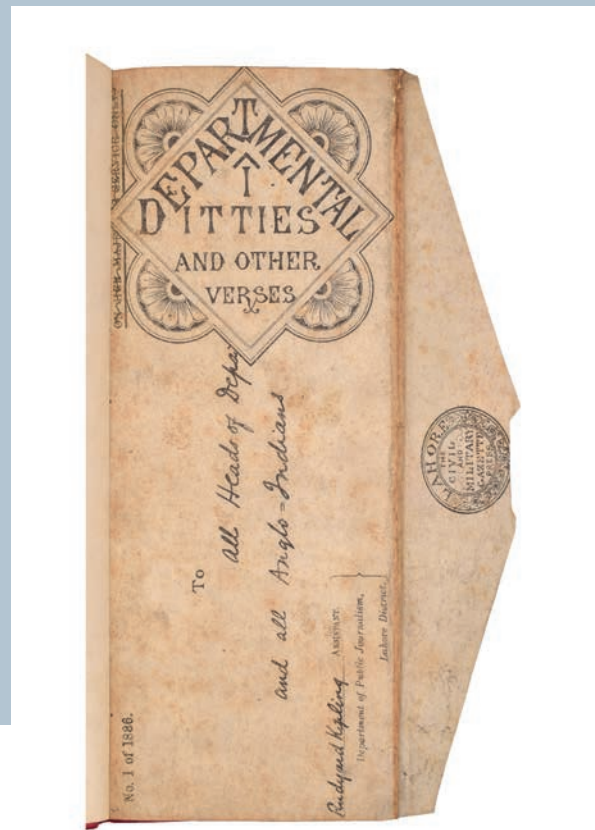 ON HER MAJESTY'S SERVICE ONLY
DEPARTMENTAL
DITTIES
AND OTHER
VERSES
No. 1 of 1886.
To
all Heads of Depa
and all Anglo=Indians
Rudyard Kipling ASSISTANT
Department of Public Journalism,
Lahore District.
LAHORE
THE
CIVIL
AND
MILITARY
GAZETTE
PRESS